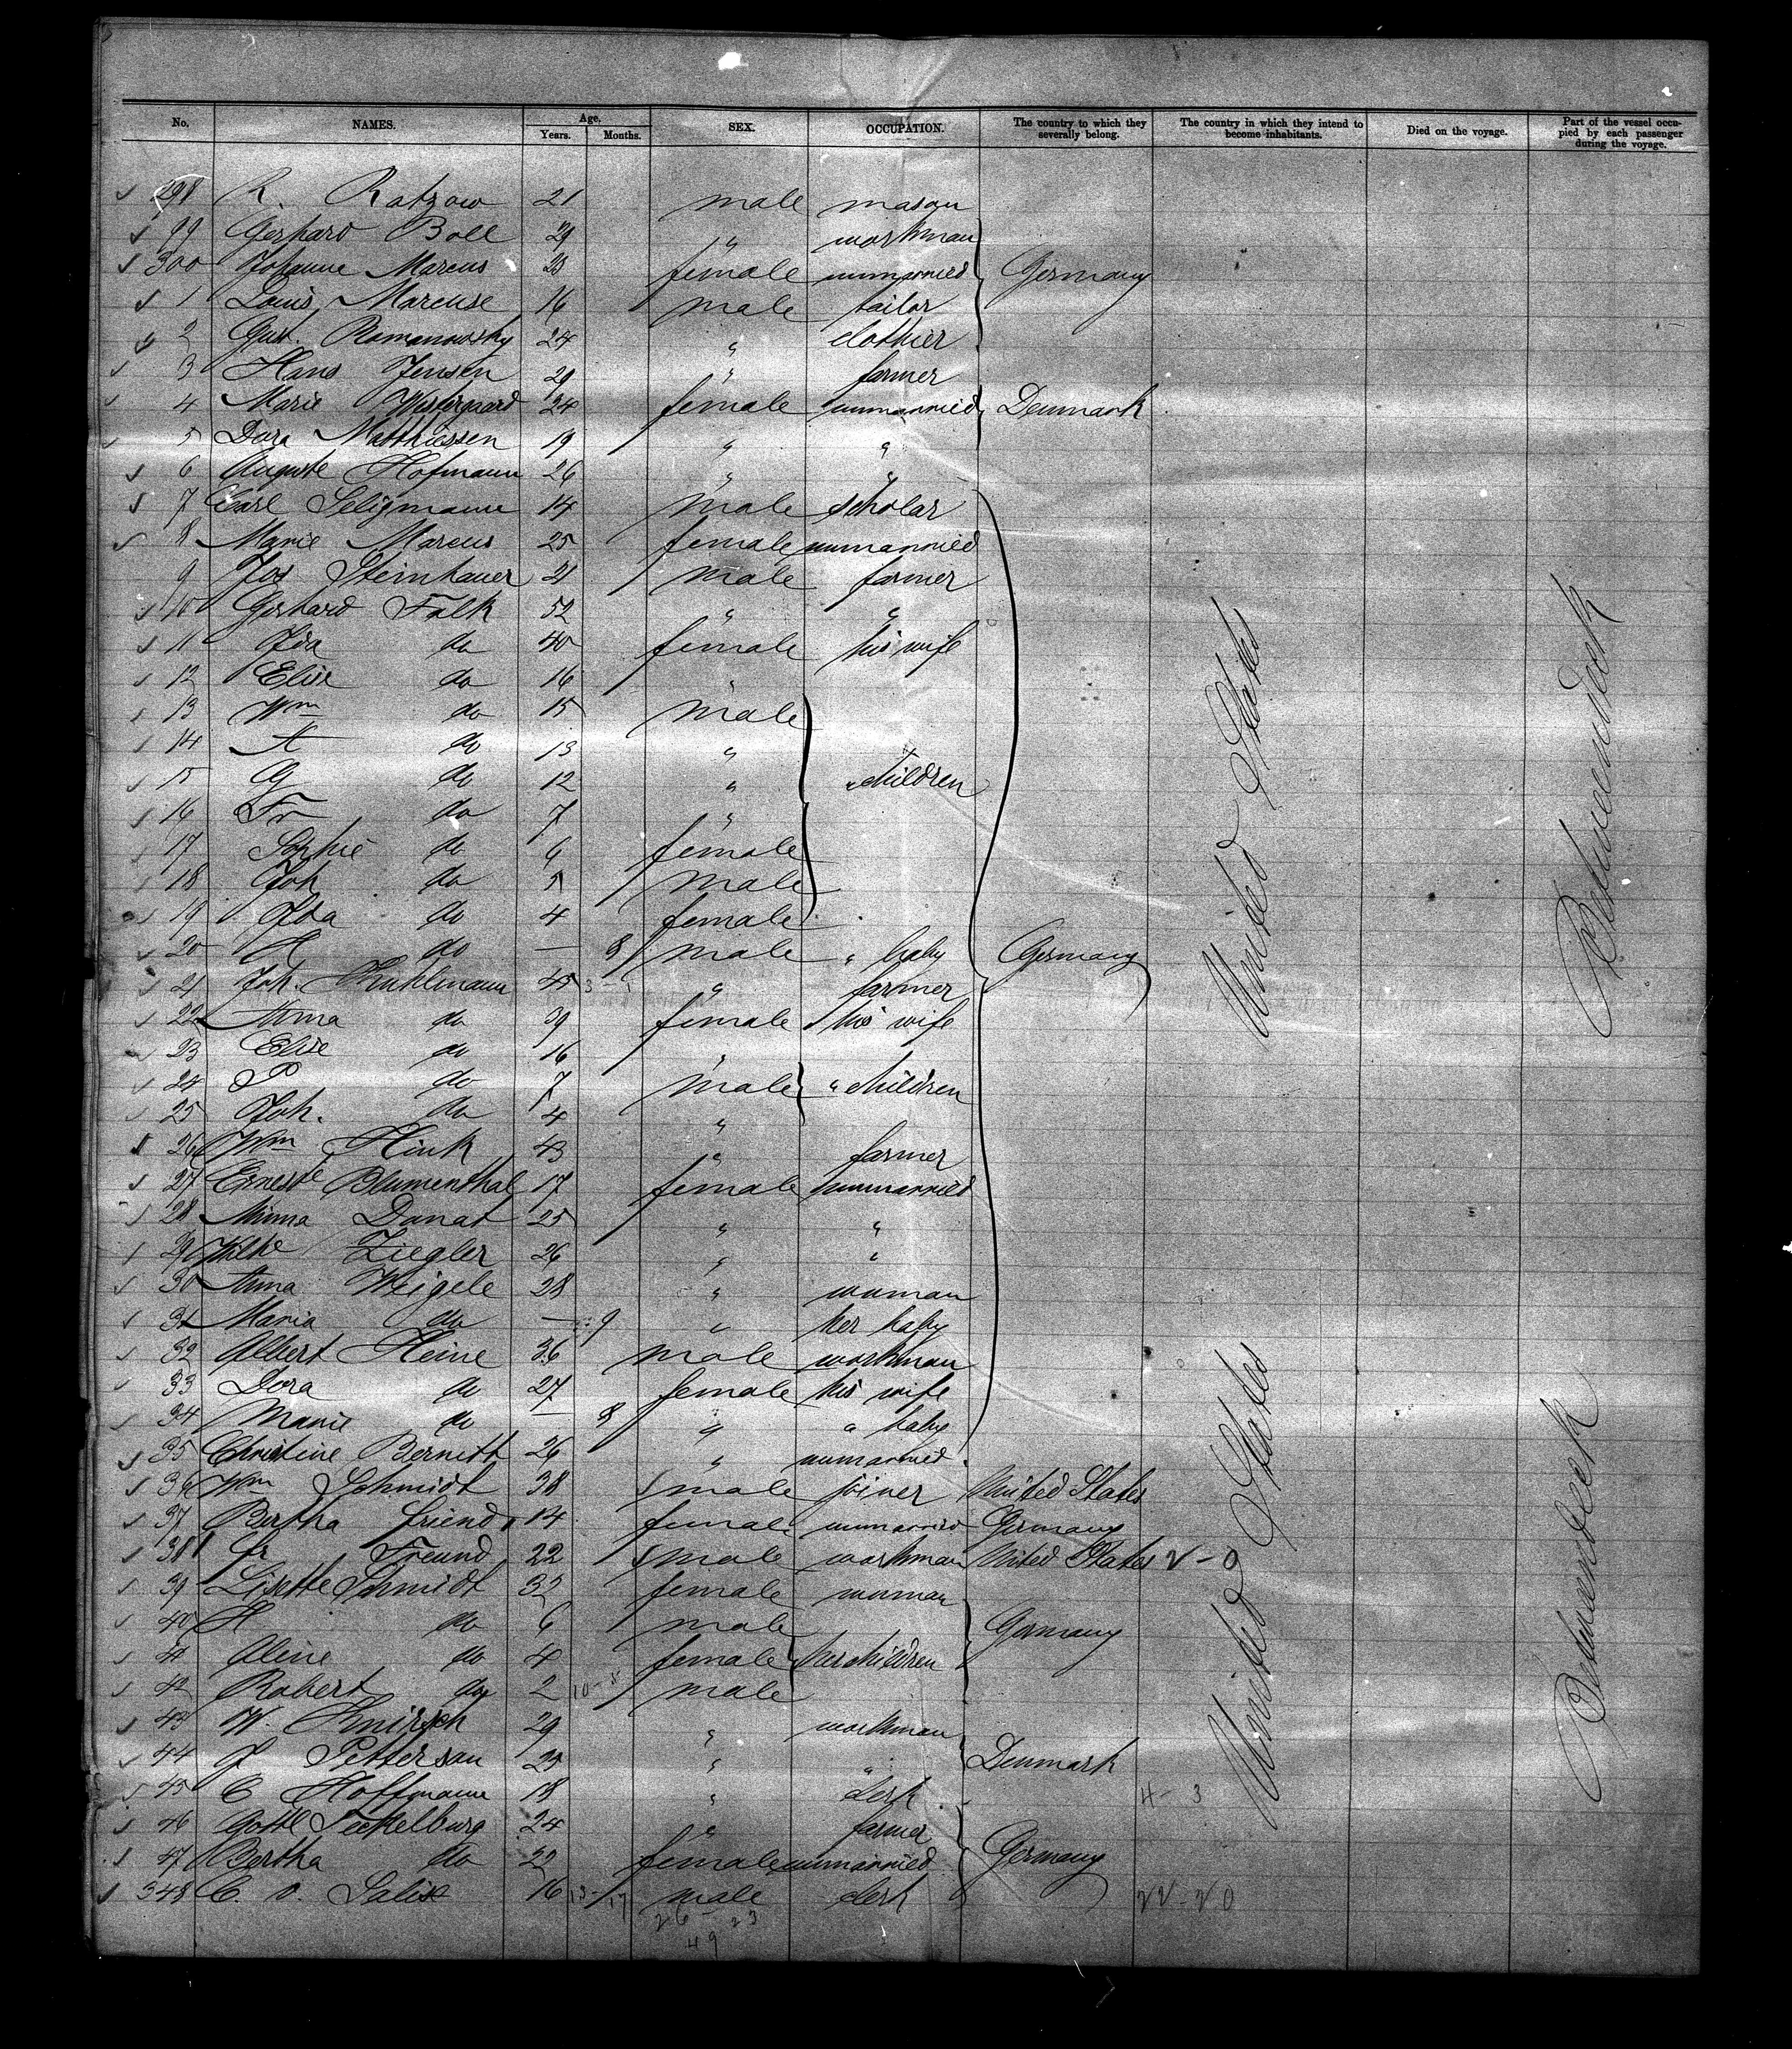 No. NAMES. Age, Years. Months. SEX. OCCUPATION. The country to which they severally belong. The country in which they intend to become inhabitants. Died on the voyage. Part of the vessel occupied by each passenger during the voyage.
298 R. Ratzow 21 male mason
99 Gerhard Boll 29 " workman
300 Johanne Marcus 23 female unmarried Germany
1 Louis Marcuse 16 male tailor
2 Gust. Romanowsky 24 " clothier
3 Hans Jensen 29 " farmer
4 Marie Westergaard 24 female unmarried Denmark
5 Dora Matthiessen 19 " "
6 Auguste Hofmann 26 " "
7 Carl Seligmann 14 male scholar
8 Marie Marcus 25 female unmarried
9 Jos Steinhauer 21 male farmer
10 Gerhard Falk 52 " "
11 Ida do 40 female his wife
12 Elise do 16 "
13 Wm do 15 male
14 A do 13 "
15 G do 12 " " children
16 Fr do 7 "
17 Sophie do 6 female
18 Joh do 5 male
19 Ida do 4 female
20 H do — 8 male " baby Germany
21 Joh. Kuhlmann 45 " farmer
22 Anna do 39 female his wife
23 Elise do 16 "
24 P do 7 male " children
25 Joh. do 4 "
26 Wm Hink 43 " farmer
27 Ernest Blumenthal 17 female unmarried
28 Minna Donat 25 " "
29 Wilhe Ziegler 26 " "
30 Anna Weigele 28 " woman
31 Maria do — 9 " her baby
32 Albert Heine 36 male workman
33 Dora do 27 female his wife
34 Marie do — 8 " " baby
35 Christine Bernett 26 " unmarried
36 Wm Schmidt 38 male joiner United States
37 Bertha Friend 14 female unmarried Germany
38 Fr Freund 22 male workman United States 2-0
39 Lisette Schmidt 32 female woman
40 H do 6 male Germany
41 Aline do 4 female her children
42 Robert do 2 male
43 W. Knirsch 29 " workman
44 J Petterson 23 " " Denmark
45 C Hoffmann 18 " clerk 4-3
46 Gottl Teckelburg 24 " farmer
47 Bertha do 22 female unmarried Germany
348 C. v. Salis 16 13-17 male clerk 22-20
26-23
49
United States
United States
Betweendeck
Betweendeck